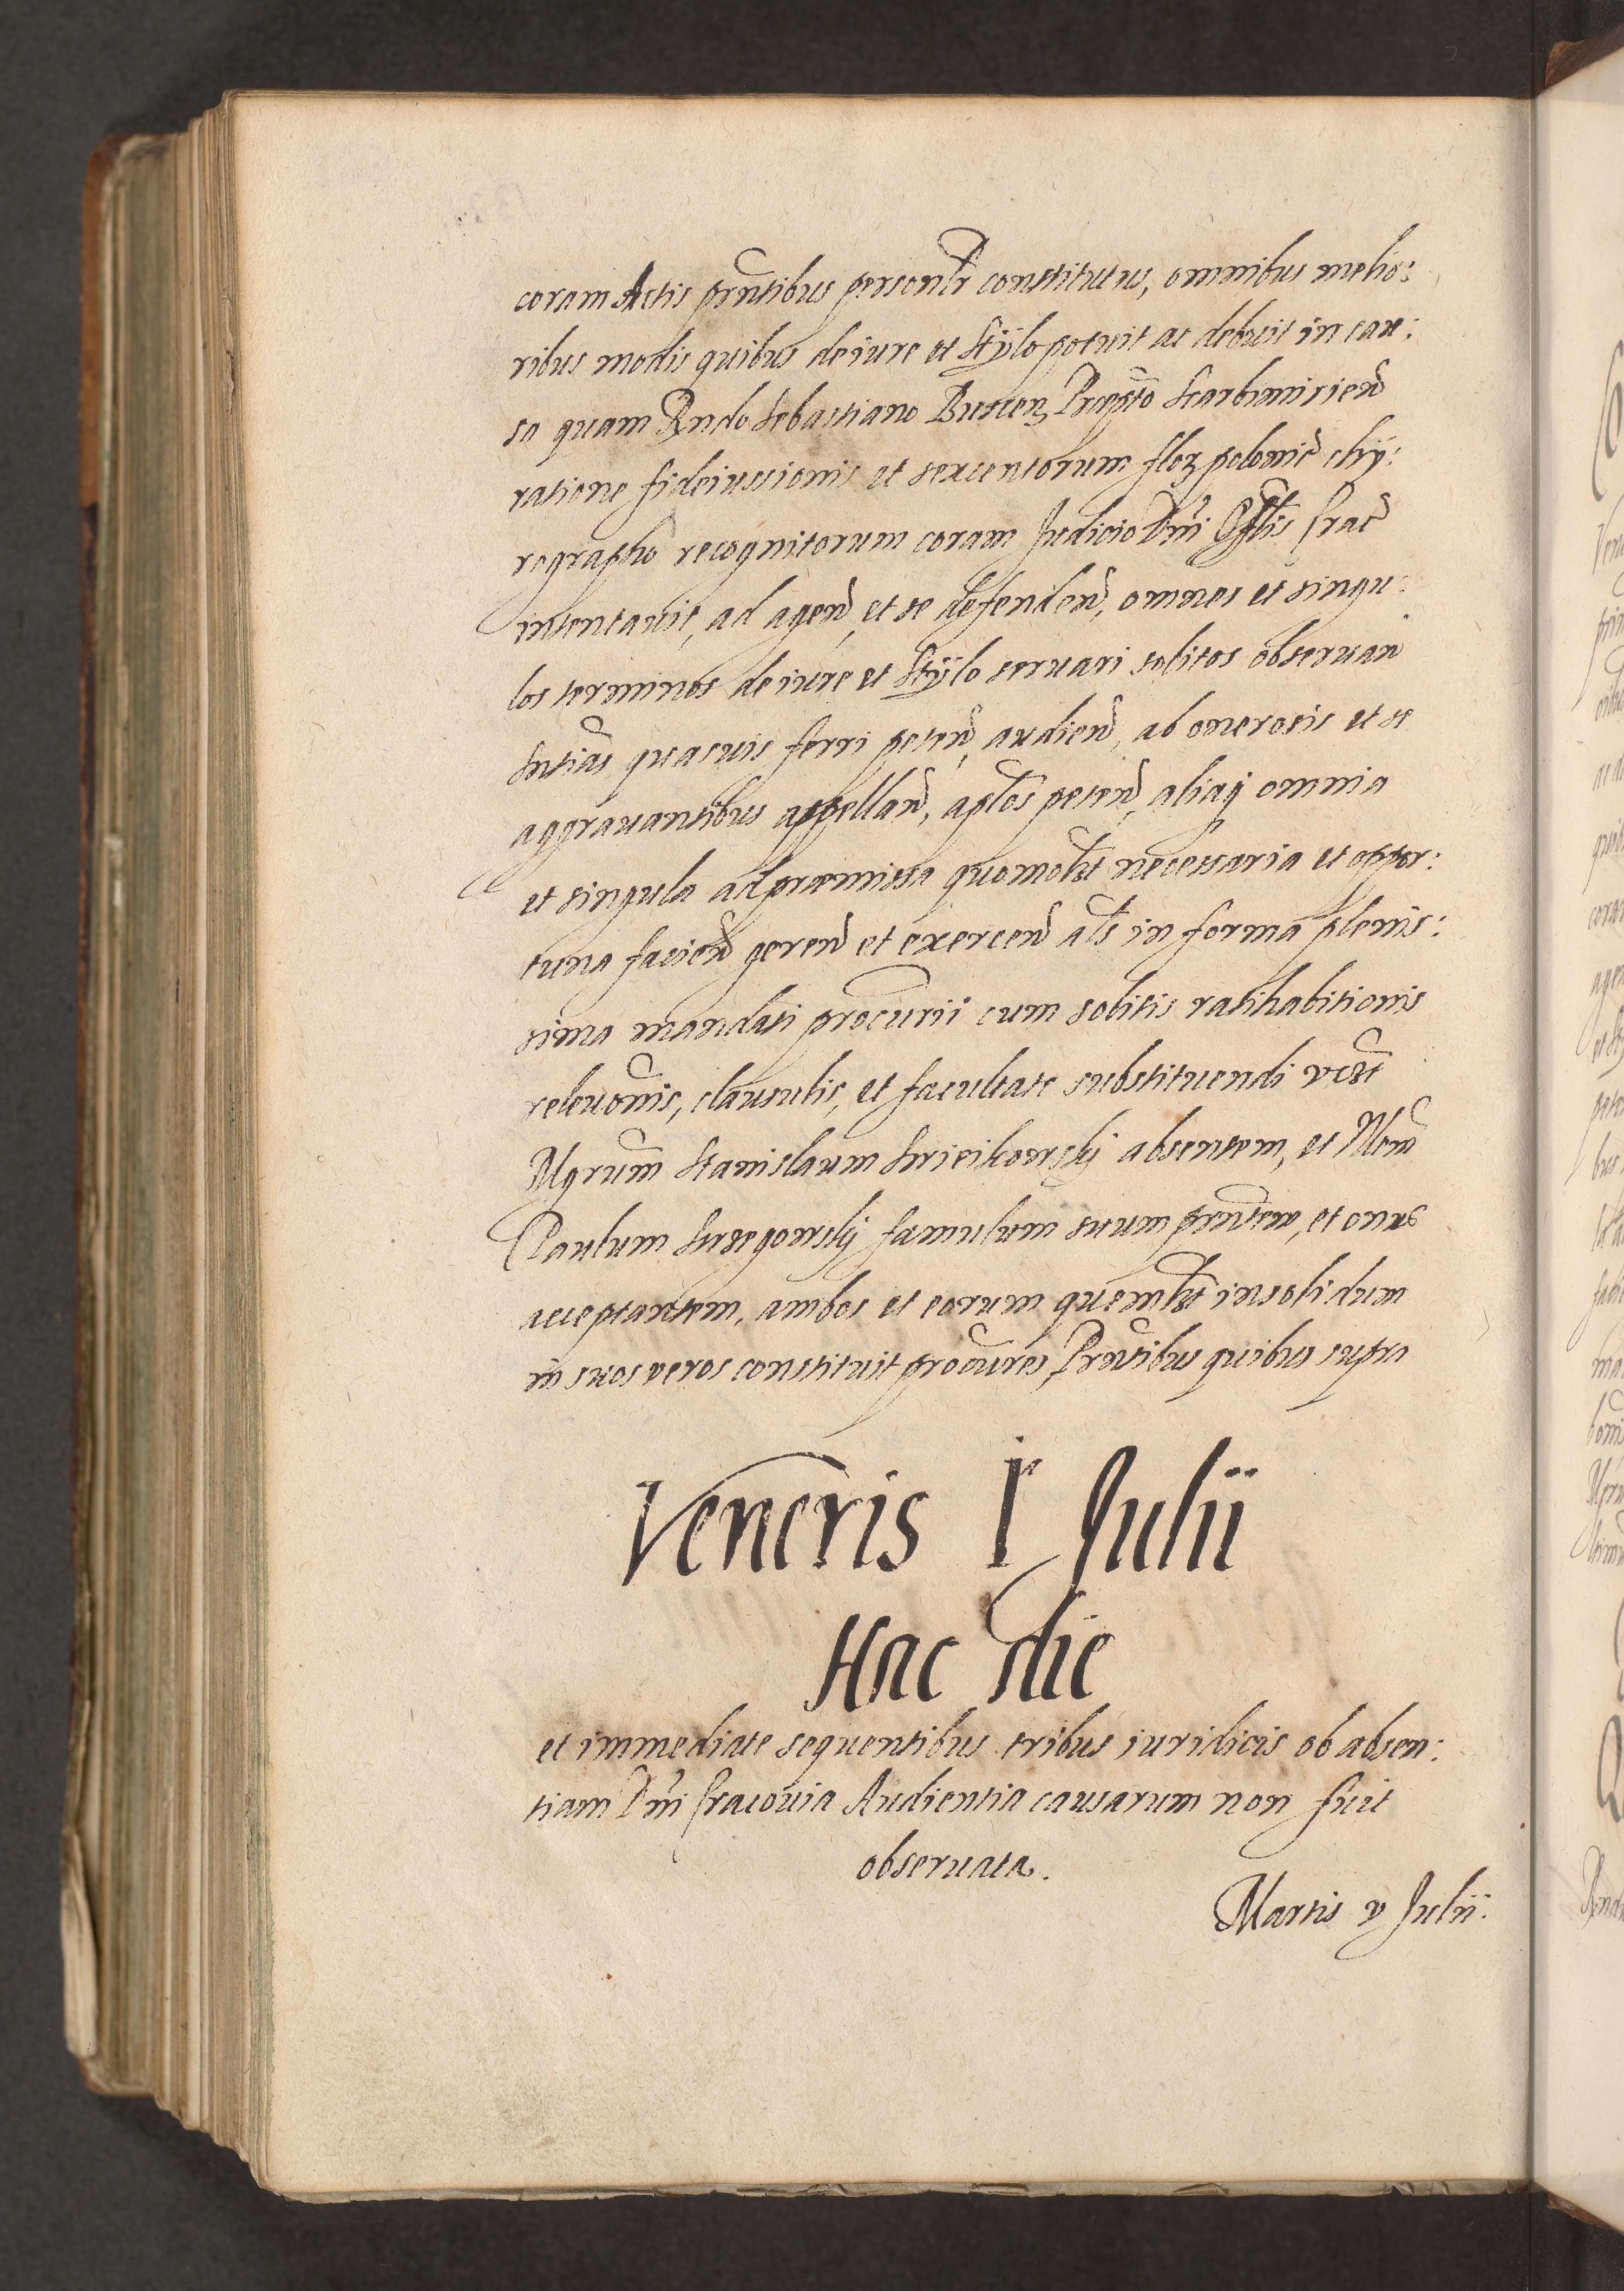 coram Actis pntibus personlr constitutus, omnibus melio:
ribus modis quibus de iure et stÿlo potuit ac debuit in cau:
sa quam Rndo Sebastiano Præpto Skarbimirien
ratione fideiussionis et sexcentorum flor polonic chÿ:
rographo recognitorum coram Judicio Dni Offlis Crac
intentavit, ad agen, et se defenden, omnes et singu:
los terminos de iure et stÿlo servari solitos observan
sntias quasvis ferri peten, audien, ab onerosis et se
aggravantibus appellan, aplos peten, aliaq omnia
et singula ad præmissa quomolt necessaria et oppor:
tuna facien geren et exercen als in forma plenis:
sima mandati procurii cum solitis ratihabitionis
relevonis, clausulis, et facultate substituendi
Mgrum Stanislaum absentem, et Nlem
Paulum famulum suum pntem, et onus
acceptantem, ambos et eorum quemlt insolidum
in suos veros constituit procures, Pntibus quibus supra
Veneris Iª Julii
Hac die
et immediate sequentibus tribus iuridicis ob absen:
tiam Dni Cracovia Audientia causarum non fuit
observata.
Martis v Julii: